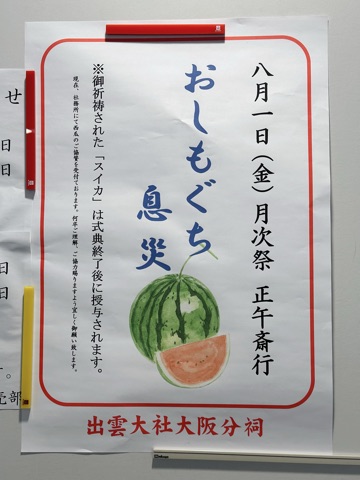 八月一日（金）月次祭 正午斎行
おしもぐち
息災
※御祈祷された「スイカ」は式典終了後に授与されます。
現在、社務所にて西瓜のご協賛を受付ております。何卒ご理解、ご協力賜りますよう宜しく御願い致します。
出雲大社大阪分祠
せ
日
日
日
日
す。
売部